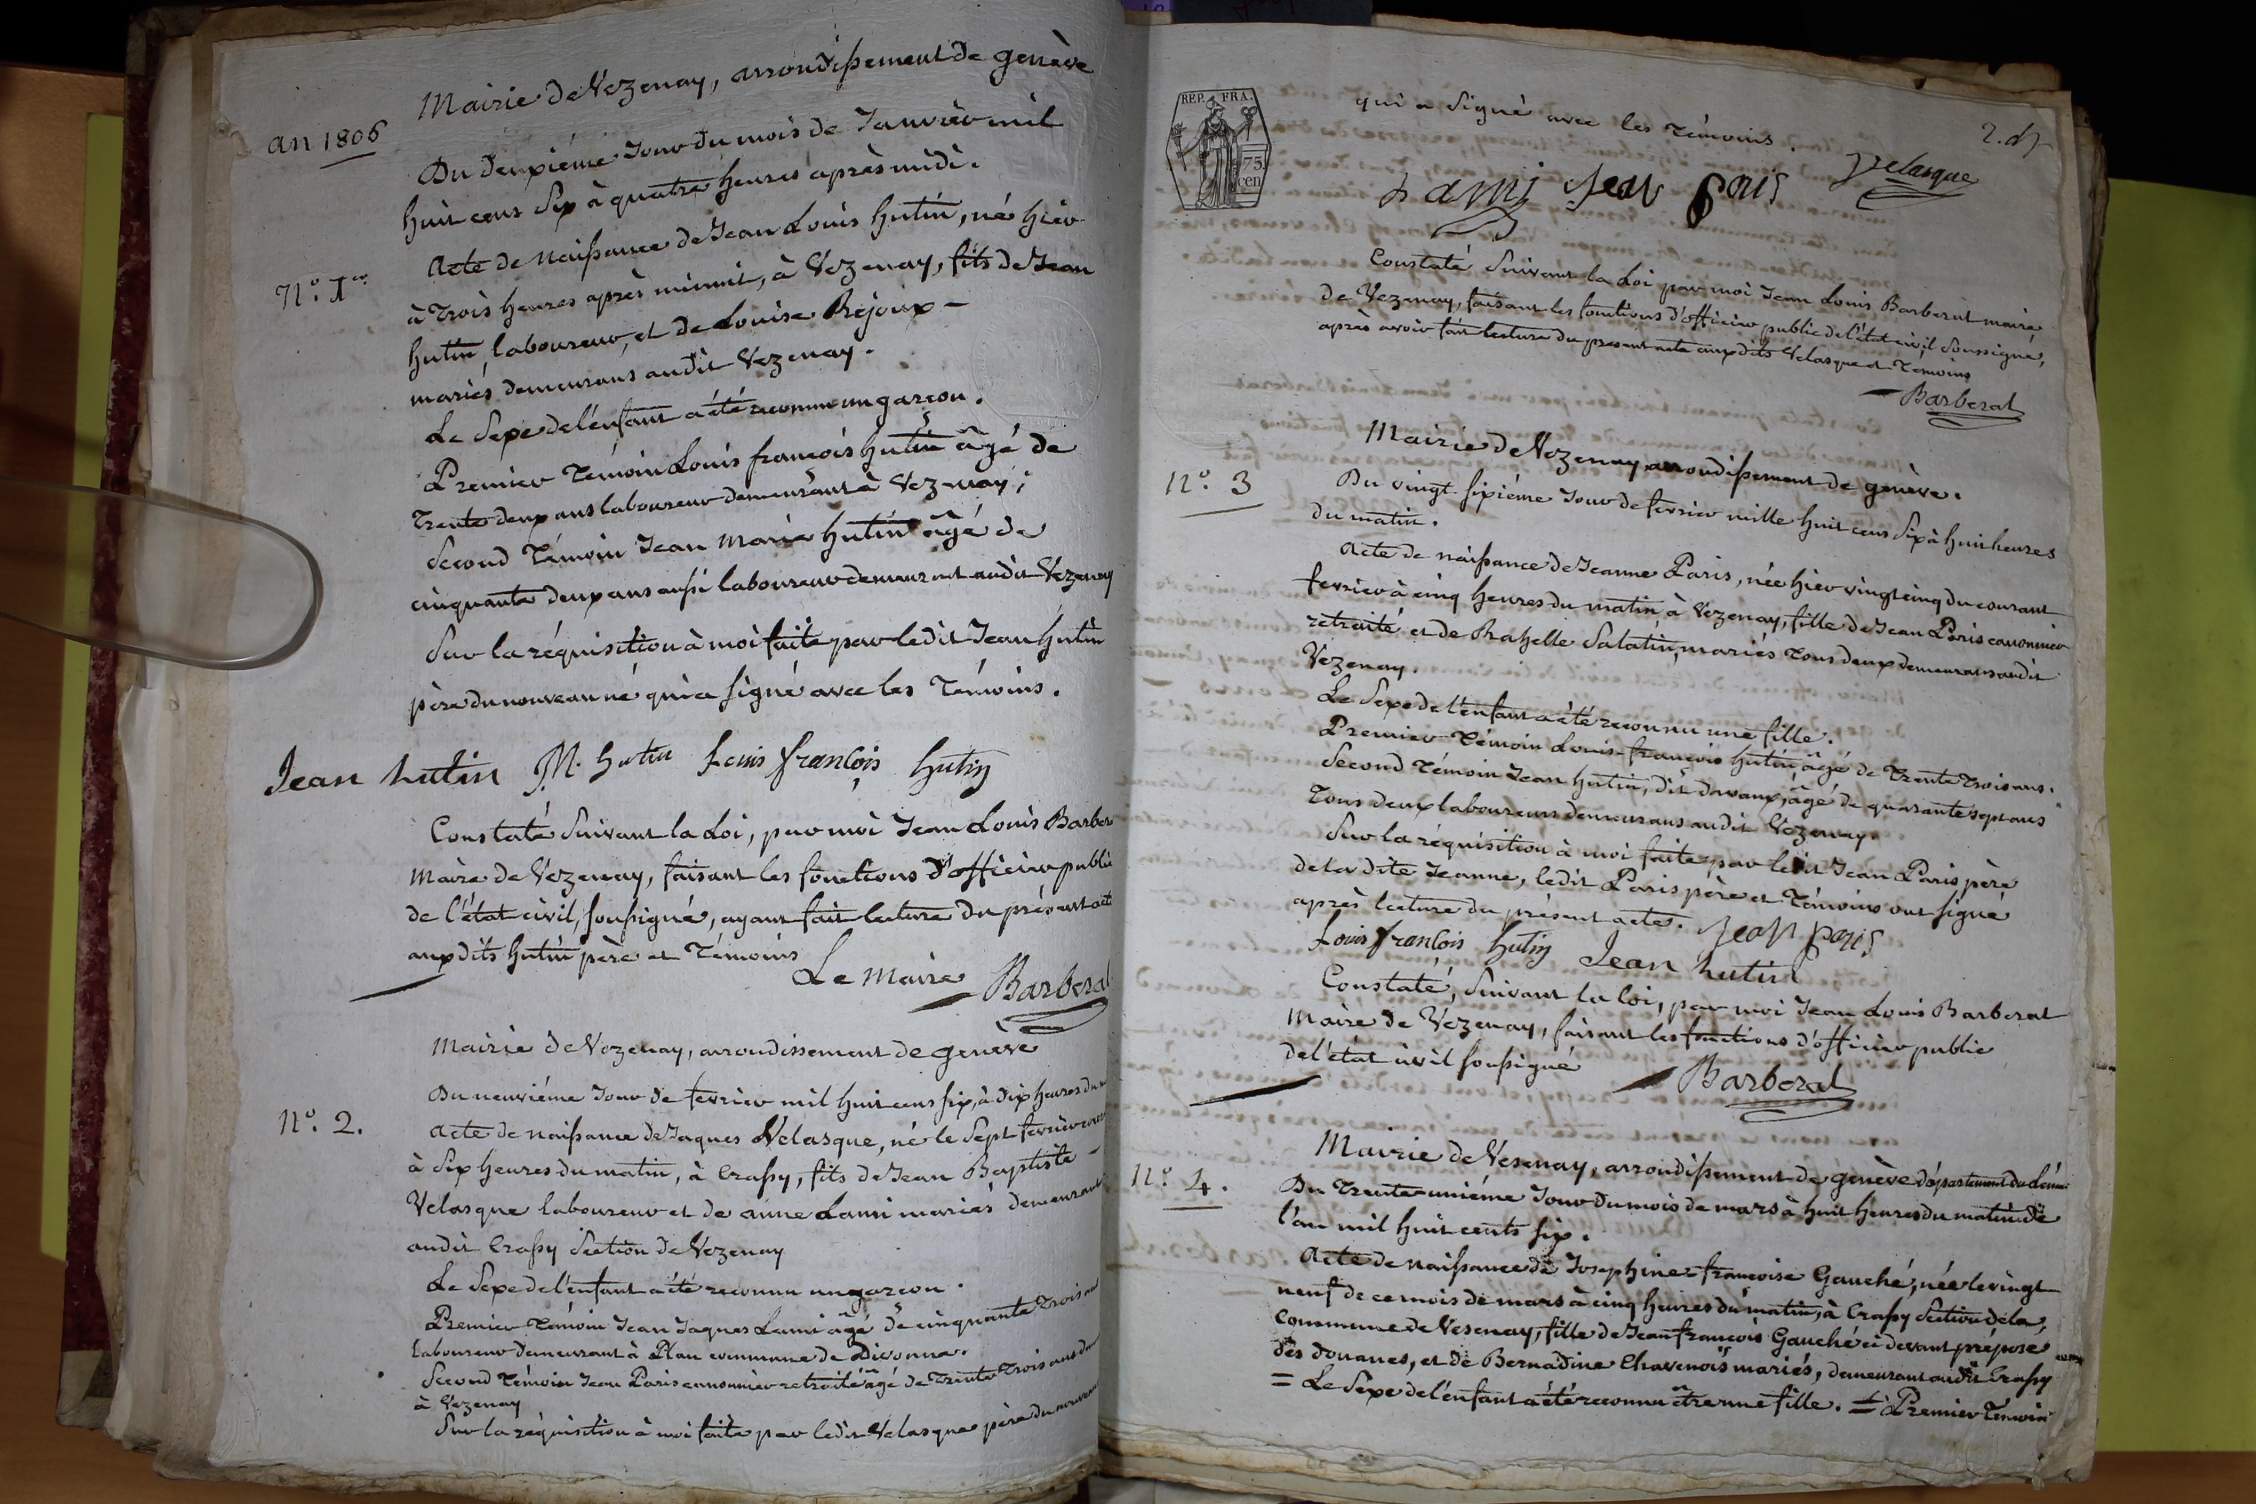 Mairie de Vezenay, arrondissement de genève
an 1806
Du deuxiéme Jour du mois de Janvier mil
huit cens Six à quatre heures après midi.
Nº. 1er
Acte de Naissance de Jean Louis hutin, né hier
à trois heures après minuit, à Vezenay, fils de Jean
hutin, laboureur, et de Louise Rejoux -
mariés demeurans audit Vezenay.
Le Sexe de l'énfant a été reconnu un garcon.
Premier témoin Louis françois hutin âgé de
trente deux ans laboureur demeurant à Vezenay;
Second témoin Jean Marie hutin âgé de
cinquante deux ans aussi laboureur demeurant audit Vezenay
Sur la réquisition à moi faite par ledit Jean hutin
père du nouveau né qui a signé avec les témoins.
Jean hutin J. M. hutin Louis françois hutin
Constaté Suivant la Loi, par moi Jean Louis Barber
Maire de Vezenay, faisant les fonctions d'officier public
de l'état civil, soussigné, ayant fait lecture du présent acte
aux dits hutin père et témoins
Le Maire Barberat
Mairie de Vezenay, arrondissement de genève
Du neuviéme Jour de fevrier mil huit cens six, à dix heures du
Nº. 2.
Acte de naissance de Jaques Velasque, né le Sept fevrier
à Six heures du matin, à Crassy, fils de Jean Baptiste -
Velasque laboureur et de anne Lami mariés demeurant
audit Crassy Section de Vezenay
Le Sexe de l'énfant a été reconnu un garcon.
Premier témoin Jean Jaques Lami âgé de cinquante trois ans
laboureur demeurant à Plan commune de Divonne.
Second témoin Jean Paris canonnier retraité âgé de trente trois ans
à Vezenay
Sur la réquisition à moi faite par ledit Velasque père du nouveau
REP. FRA.
75
cen.
2. df
qui a Signé avec les témoins.
Lami Jean paris Velasque
Constaté Suivant la Loi par moi Jean Louis Barberat maire
de Vezenay, faisant les fonctions d'officier public de l'état civil Soussigné,
après avoir fait lecture du present acte auxdits Velasque et témoins
Barberat
Mairie de Vezenay arrondissement de genève.
Nº. 3
Du vingt sixiéme Jour de fevrier mille huit cens Six à huit heures
du matin.
Acte de naissance de Jeanne Paris, née hier vingt cinq du courant
fevrier à cinq heures du matin, à Vezenay, fille de Jean Paris canonnier
retraité et de Rahelle Salatin, mariés tous deux demeurans audit
Vezenay.
Le Sexe de l'énfant a été reconnu une fille.
Premier témoin Louis françois hutin, âgé de trente trois ans.
Second témoin Jean hutin, dit Davaux, âgé de quarante sept ans
tous deux laboureurs demeurans audit Vezenay.
Sur la réquisition à moi faite par ledit Jean Paris père
de la dite Jeanne, ledit Paris père et témoins ont signé
après lecture du présent acte. Jean paris
Louis françois hutin Jean hutin
Constaté, Suivant la loi, par moi Jean Louis Barberat
Maire de Vezenay, faisant les fonctions d'officier public
de l'état civil soussigné
Barberat
Mairie de Vesenay, arrondissement de genève département du Léman
Nº. 4.
Du trente-uniéme Jour du mois de mars à huit heures du matin de
l'an mil huit cents six.
Acte de naissance de Josephine-francoise Gauché, née le vingt
neuf de ce mois de mars à cinq heures du matin, à Crassy Section de la,
commune de Vesenay, fille de Jean françois Gauché ci devant préposé
dès douanes, et de Bernadine Chavenois mariés, demeurant audit Crassy
= Le Sexe de l'énfant a été reconnu être une fille. = Premier témoin